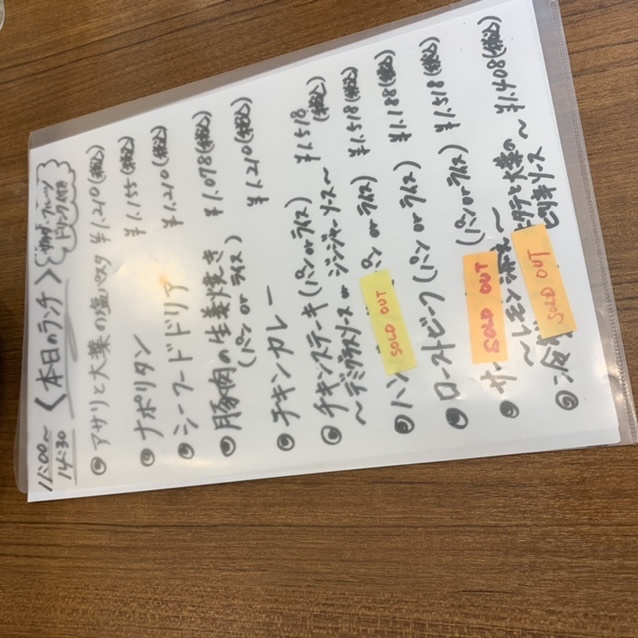 11:00〜14:30
〈本日のランチ〉
サラダ・フルーツ
ドリンク付き
◎アサリと大葉の塩パスタ ¥1.210(税込)
◎ナポリタン ¥1.155(税込)
◎シーフードドリア ¥1.210(税込)
◎豚肉の生姜焼き ¥1.078(税込)
(パン or ライス)
◎チキンカレー ¥1.210(税込)
◎チキンステーキ(パン or ライス) ¥1.518(税込)
〜デミグラスソース or ジンジャーソース〜
◎ハン パン or ライス) ¥1.518(税込)
SOLD OUT
◎ローストビーフ(パン or ライス) ¥1.188(税込)
◎サー (パン or ライス) ¥1.518(税込)
SOLD OUT
〜レモン 〜
◎冷 大葉の
ソース 〜 ¥1.408(税込)
SOLD OUT